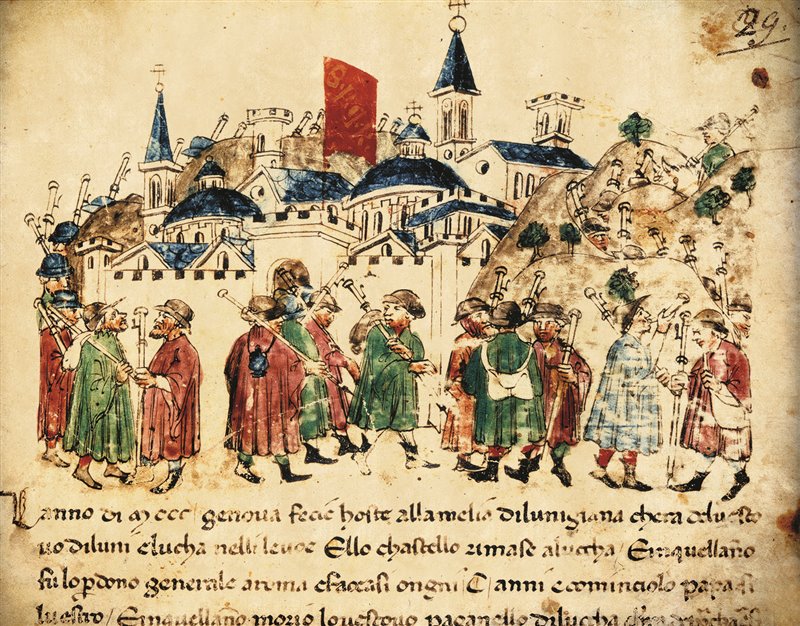 29.
Lanno di MCCC / genova fecie hoste alla melia dilunigiana chera del vesco
vo diluni e lucha nelli levoe Ello chastello rimase aluccha / Einquellãno
fu lo pdono generale aroma e faccasi ongni C / anni ecominciolo papa si
lvestro / Einquellãno morio lo vescovo paganello dilucha